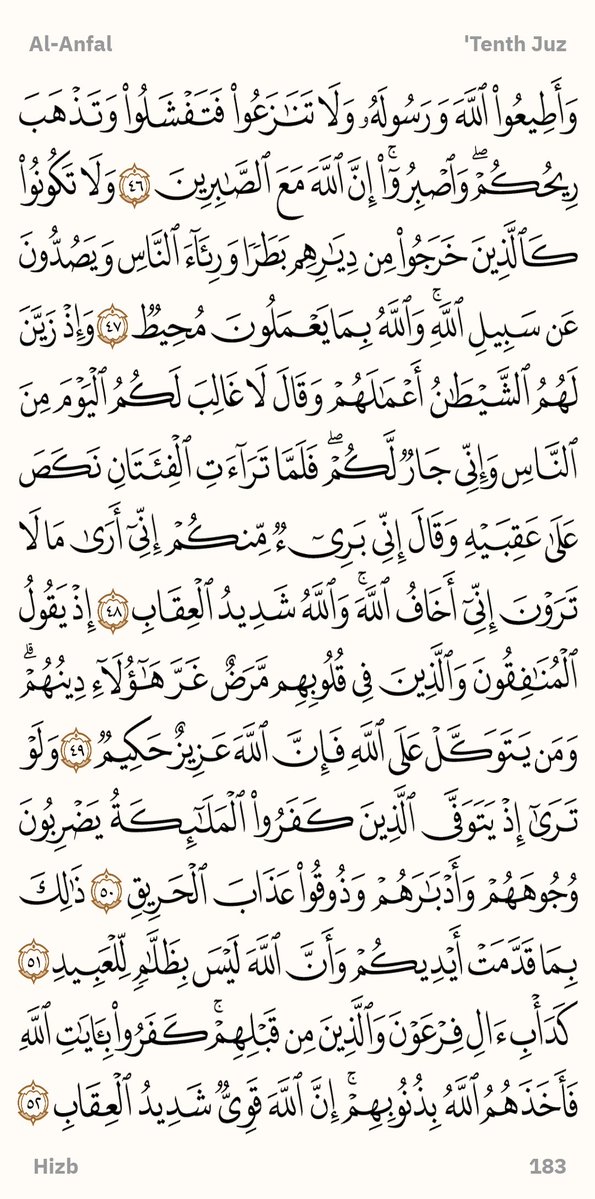 Al-Anfal
'Tenth Juz
وَأَطِيعُوا۟ ٱللَّهَ وَرَسُولَهُۥ وَلَا تَنَـٰزَعُوا۟ فَتَفْشَلُوا۟ وَتَذْهَبَ
رِيحُكُمْ ۖ وَٱصْبِرُوٓا۟ ۚ إِنَّ ٱللَّهَ مَعَ ٱلصَّـٰبِرِينَ ٤٦ وَلَا تَكُونُوا۟
كَٱلَّذِينَ خَرَجُوا۟ مِن دِيَـٰرِهِم بَطَرًا وَرِئَآءَ ٱلنَّاسِ وَيَصُدُّونَ
عَن سَبِيلِ ٱللَّهِ ۚ وَٱللَّهُ بِمَا يَعْمَلُونَ مُحِيطٌ ٤٧ وَإِذْ زَيَّنَ
لَهُمُ ٱلشَّيْطَـٰنُ أَعْمَـٰلَهُمْ وَقَالَ لَا غَالِبَ لَكُمُ ٱلْيَوْمَ مِنَ
ٱلنَّاسِ وَإِنِّى جَارٌ لَّكُمْ ۖ فَلَمَّا تَرَآءَتِ ٱلْفِئَتَانِ نَكَصَ
عَلَىٰ عَقِبَيْهِ وَقَالَ إِنِّى بَرِىٓءٌ مِّنكُمْ إِنِّىٓ أَرَىٰ مَا لَا
تَرَوْنَ إِنِّىٓ أَخَافُ ٱللَّهَ ۚ وَٱللَّهُ شَدِيدُ ٱلْعِقَابِ ٤٨ إِذْ يَقُولُ
ٱلْمُنَـٰفِقُونَ وَٱلَّذِينَ فِى قُلُوبِهِم مَّرَضٌ غَرَّ هَـٰٓؤُلَآءِ دِينُهُمْ ۗ
وَمَن يَتَوَكَّلْ عَلَى ٱللَّهِ فَإِنَّ ٱللَّهَ عَزِيزٌ حَكِيمٌ ٤٩ وَلَوْ
تَرَىٰٓ إِذْ يَتَوَفَّى ٱلَّذِينَ كَفَرُوا۟ ٱلْمَلَـٰٓئِكَةُ يَضْرِبُونَ
وُجُوهَهُمْ وَأَدْبَـٰرَهُمْ وَذُوقُوا۟ عَذَابَ ٱلْحَرِيقِ ٥٠ ذَٰلِكَ
بِمَا قَدَّمَتْ أَيْدِيكُمْ وَأَنَّ ٱللَّهَ لَيْسَ بِظَلَّـٰمٍ لِّلْعَبِيدِ ٥١
كَدَأْبِ ءَالِ فِرْعَوْنَ وَٱلَّذِينَ مِن قَبْلِهِمْ ۚ كَفَرُوا۟ بِـَٔايَـٰتِ ٱللَّهِ
فَأَخَذَهُمُ ٱللَّهُ بِذُنُوبِهِمْ ۚ إِنَّ ٱللَّهَ قَوِىٌّ شَدِيدُ ٱلْعِقَابِ ٥٢
Hizb
183